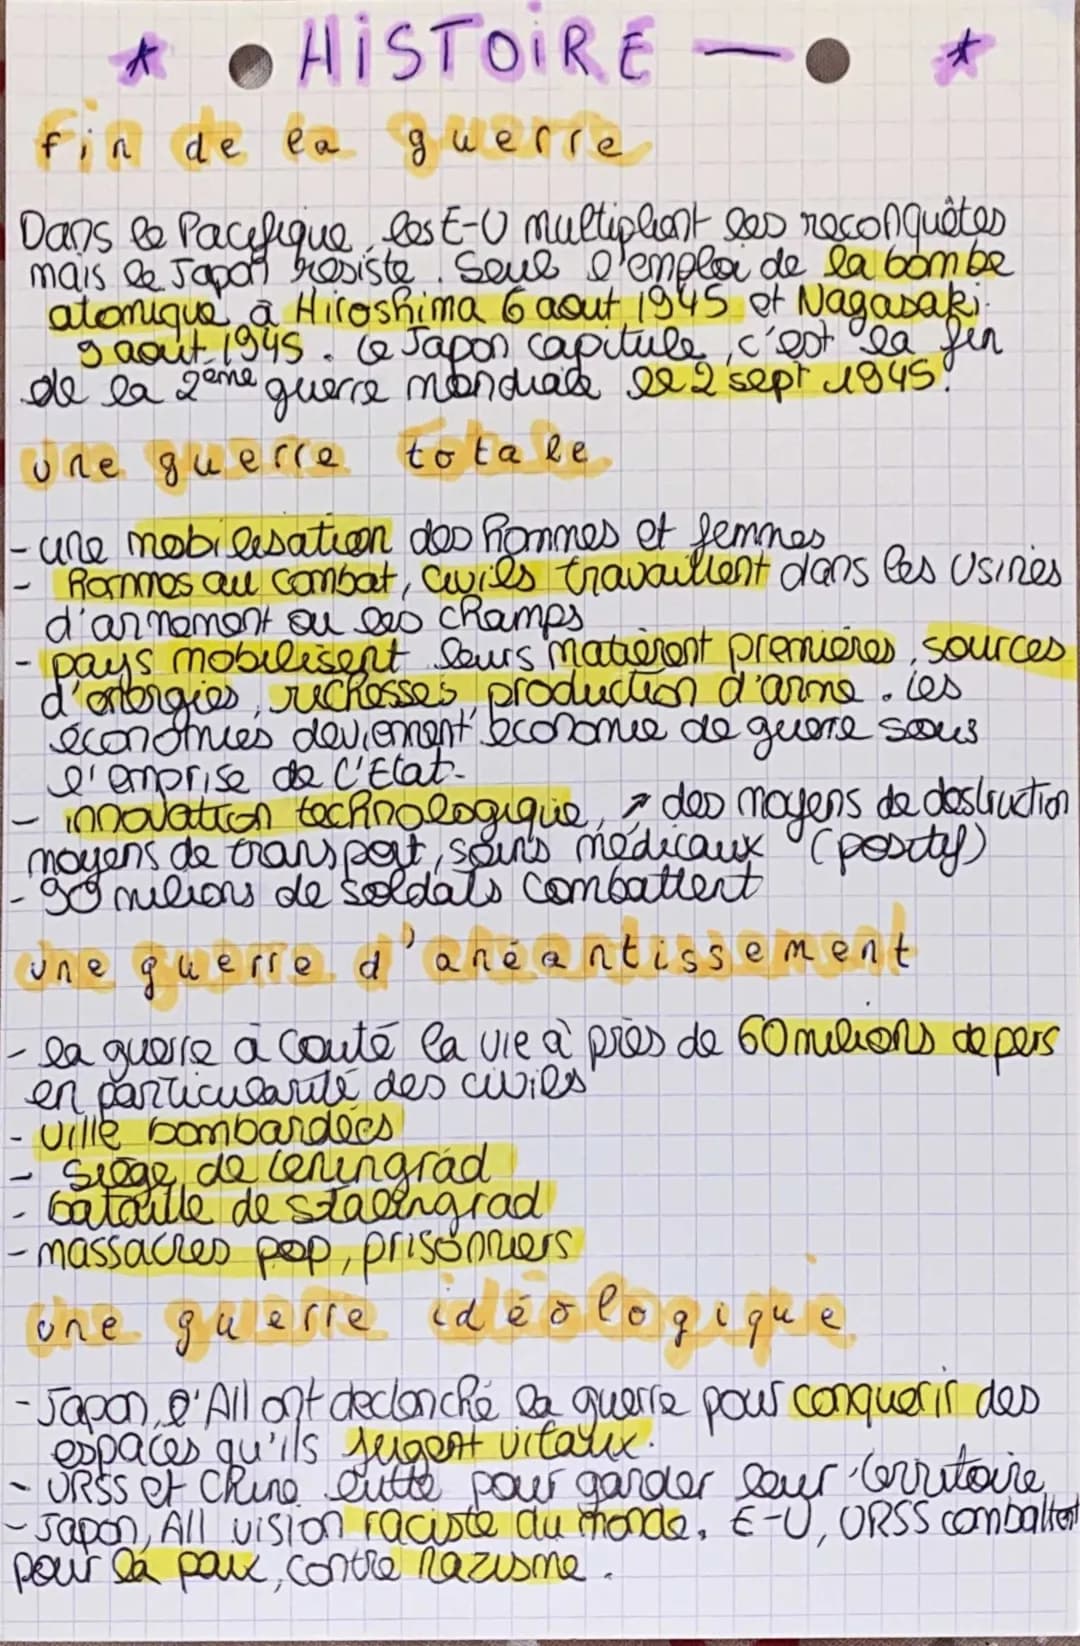 * HiSTOiRE — *
fin de la guerre
Dans le Pacifique, les E-U multiplient les reconquêtes
mais le Japon résiste. Seul l'emploi de la bombe
atomique à Hiroshima 6 aout 1945 et Nagasaki
9 août 1945. Le Japon capitule, c'est la fin
de la 2ème guerre mondiale le 2 sept 1945.
une guerre totale
- une mobilisation des hommes et femmes
- Hommes au combat, civils travaillent dans les usines
d'armement ou les champs
- pays mobilisent leurs matièrent premières, sources
d'énergies, richesses, production d'arme. Les
économies deviennent économie de guerre sous
l'emprise de l'Etat.
- innovation technologique, ↗ des moyens de destruction
moyens de transport, soins médicaux (positif)
- 90 milions de soldats combattent
une guerre d'anéantissement
- la guerre à couté la vie à près de 60 milions de pers
en particularité des civiles
- ville bombardées
- siège de Leningrad
- bataille de stalingrad
- massacres pop, prisonniers
une guerre idéologique
- Japon, l'All ont declenché la guerre pour conquerir des
espaces qu'ils jugent vitaux.
- URSS et Chine lutte pour garder leur territoire
- Japon, All vision raciste du monde. E-U, URSS combattent
pour la paix, contre nazisme.